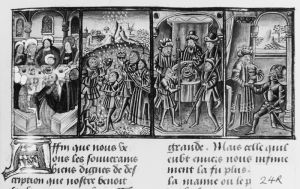 Affin que nous ve
ons les souverains
biens dignes de des
cription que nostre benoit
grande. Mais celle qui
eubt envers nous infinie
ment la fu plus.
la manne ou le p
24R